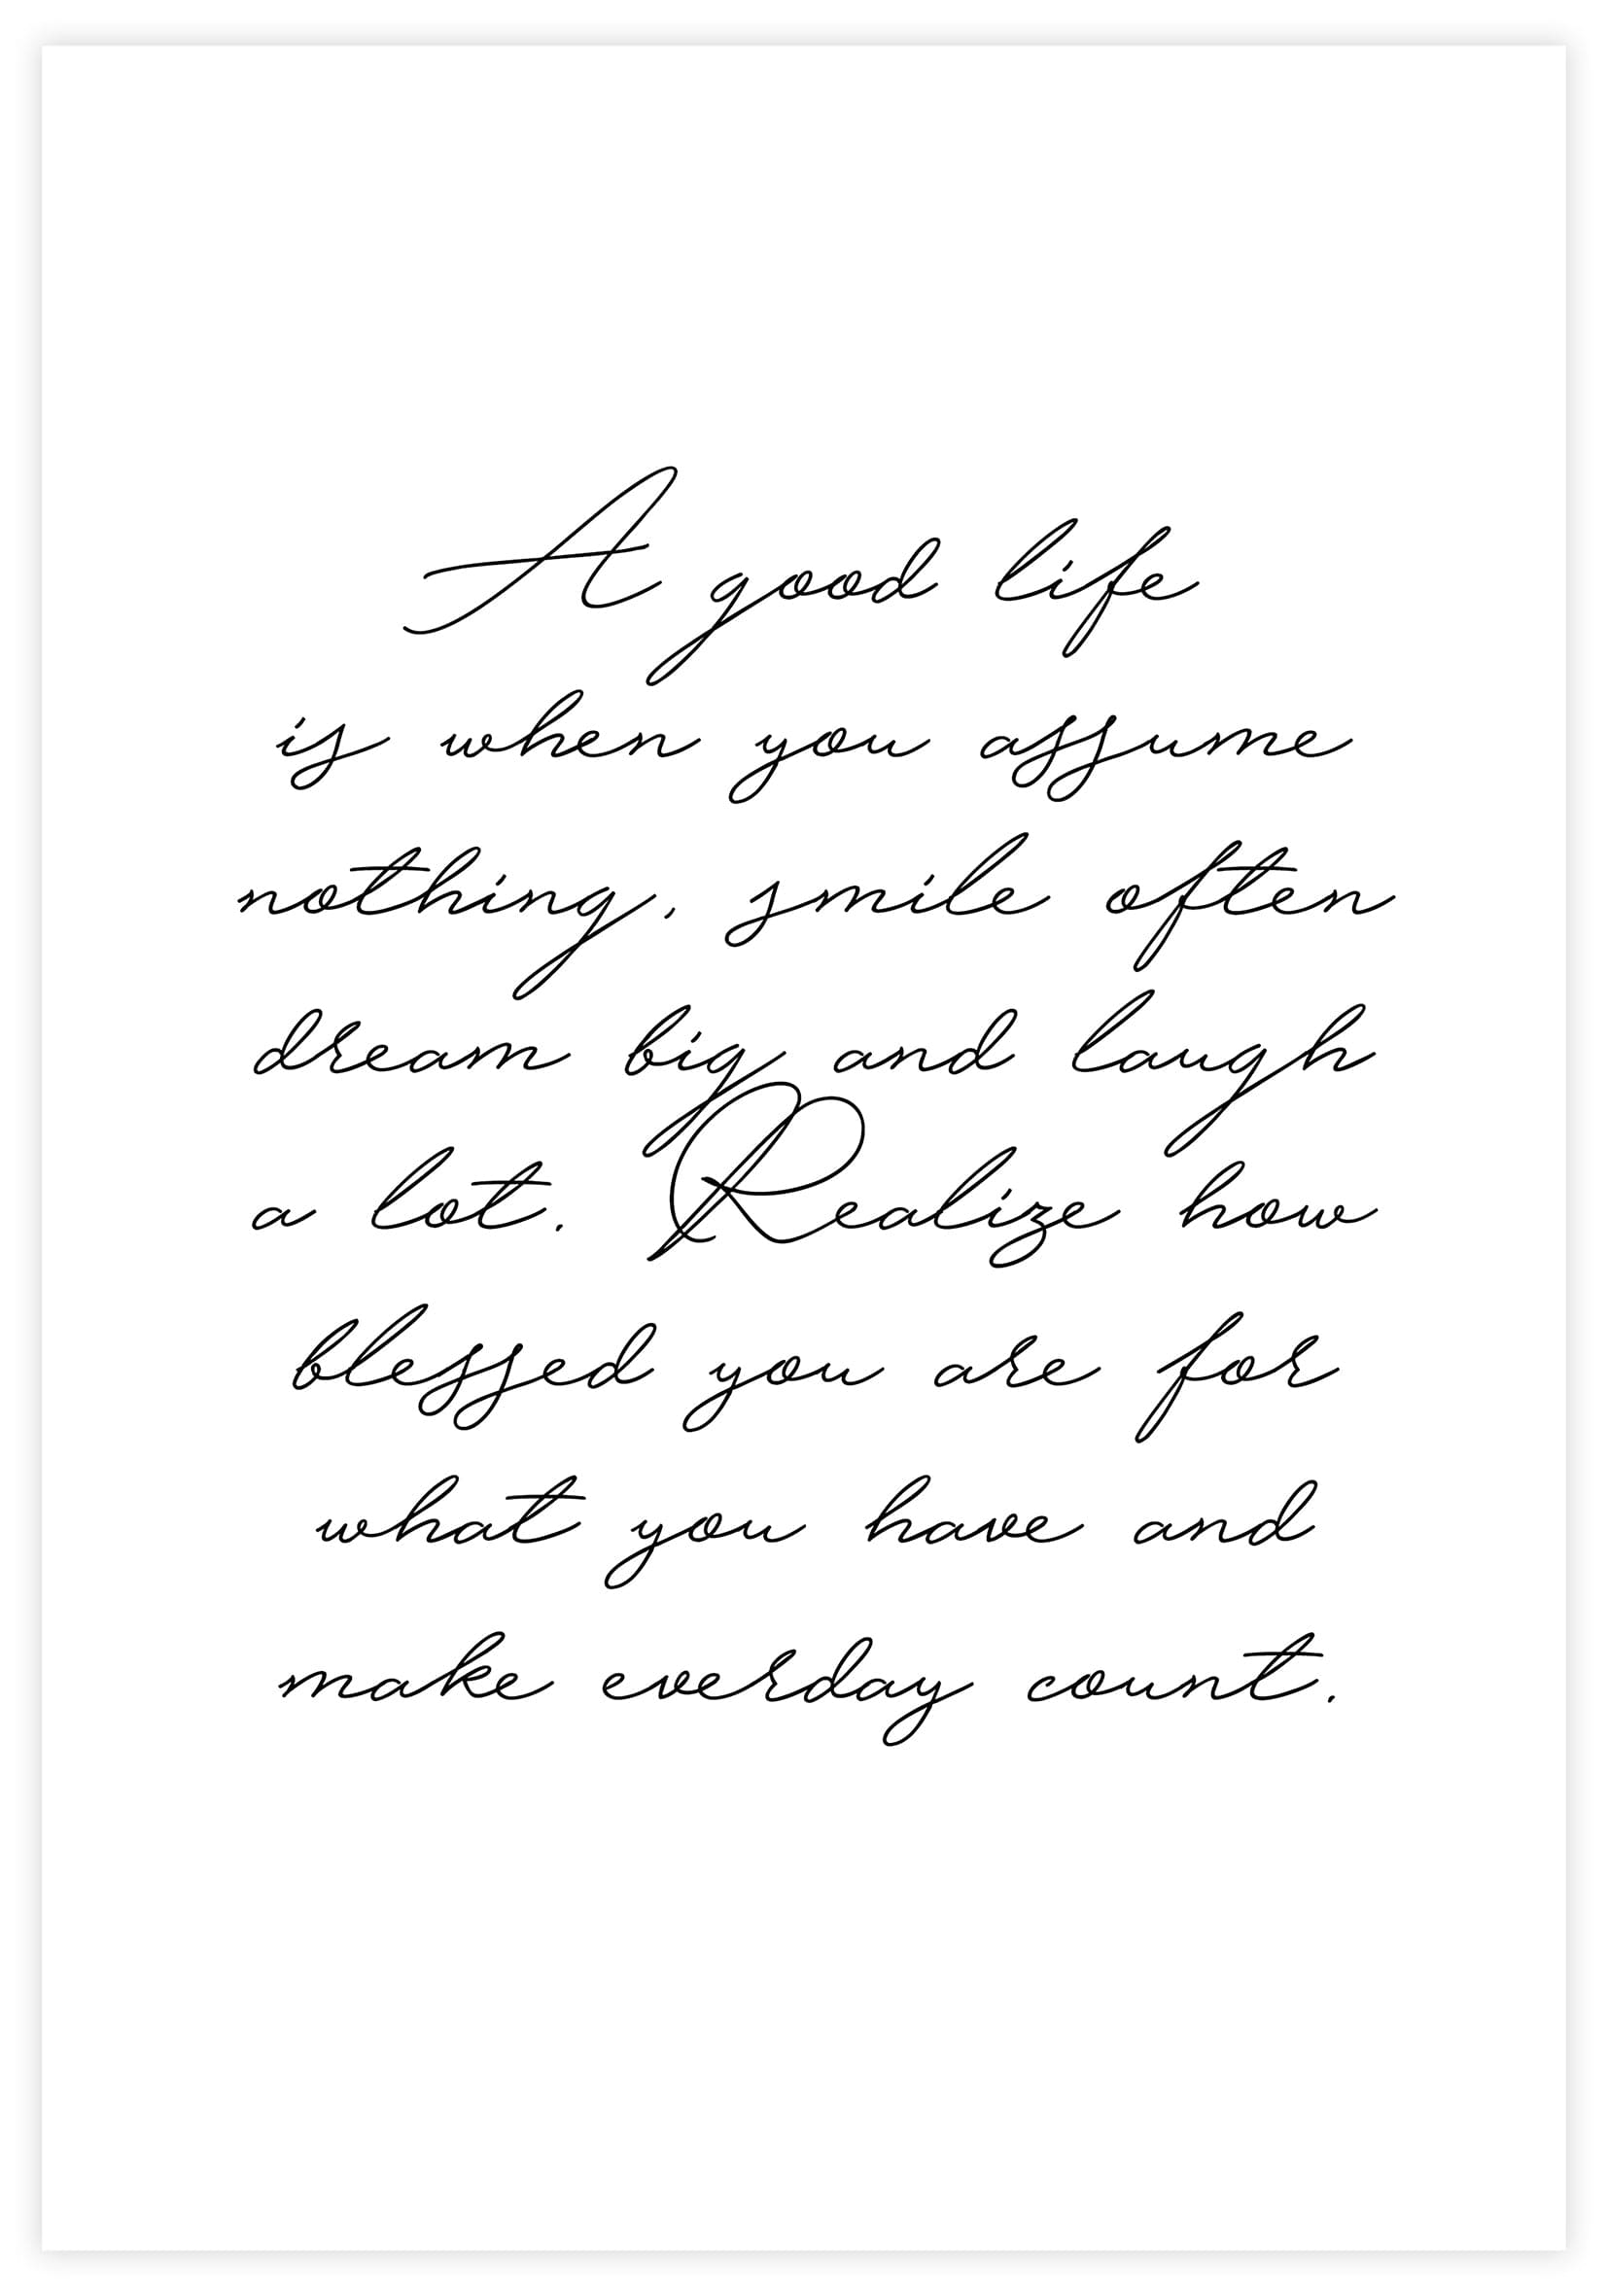 A good life
is when you assume
nothing, smile often
dream big and laugh
a lot. Realize how
blessed you are for
what you have and
make everday count.